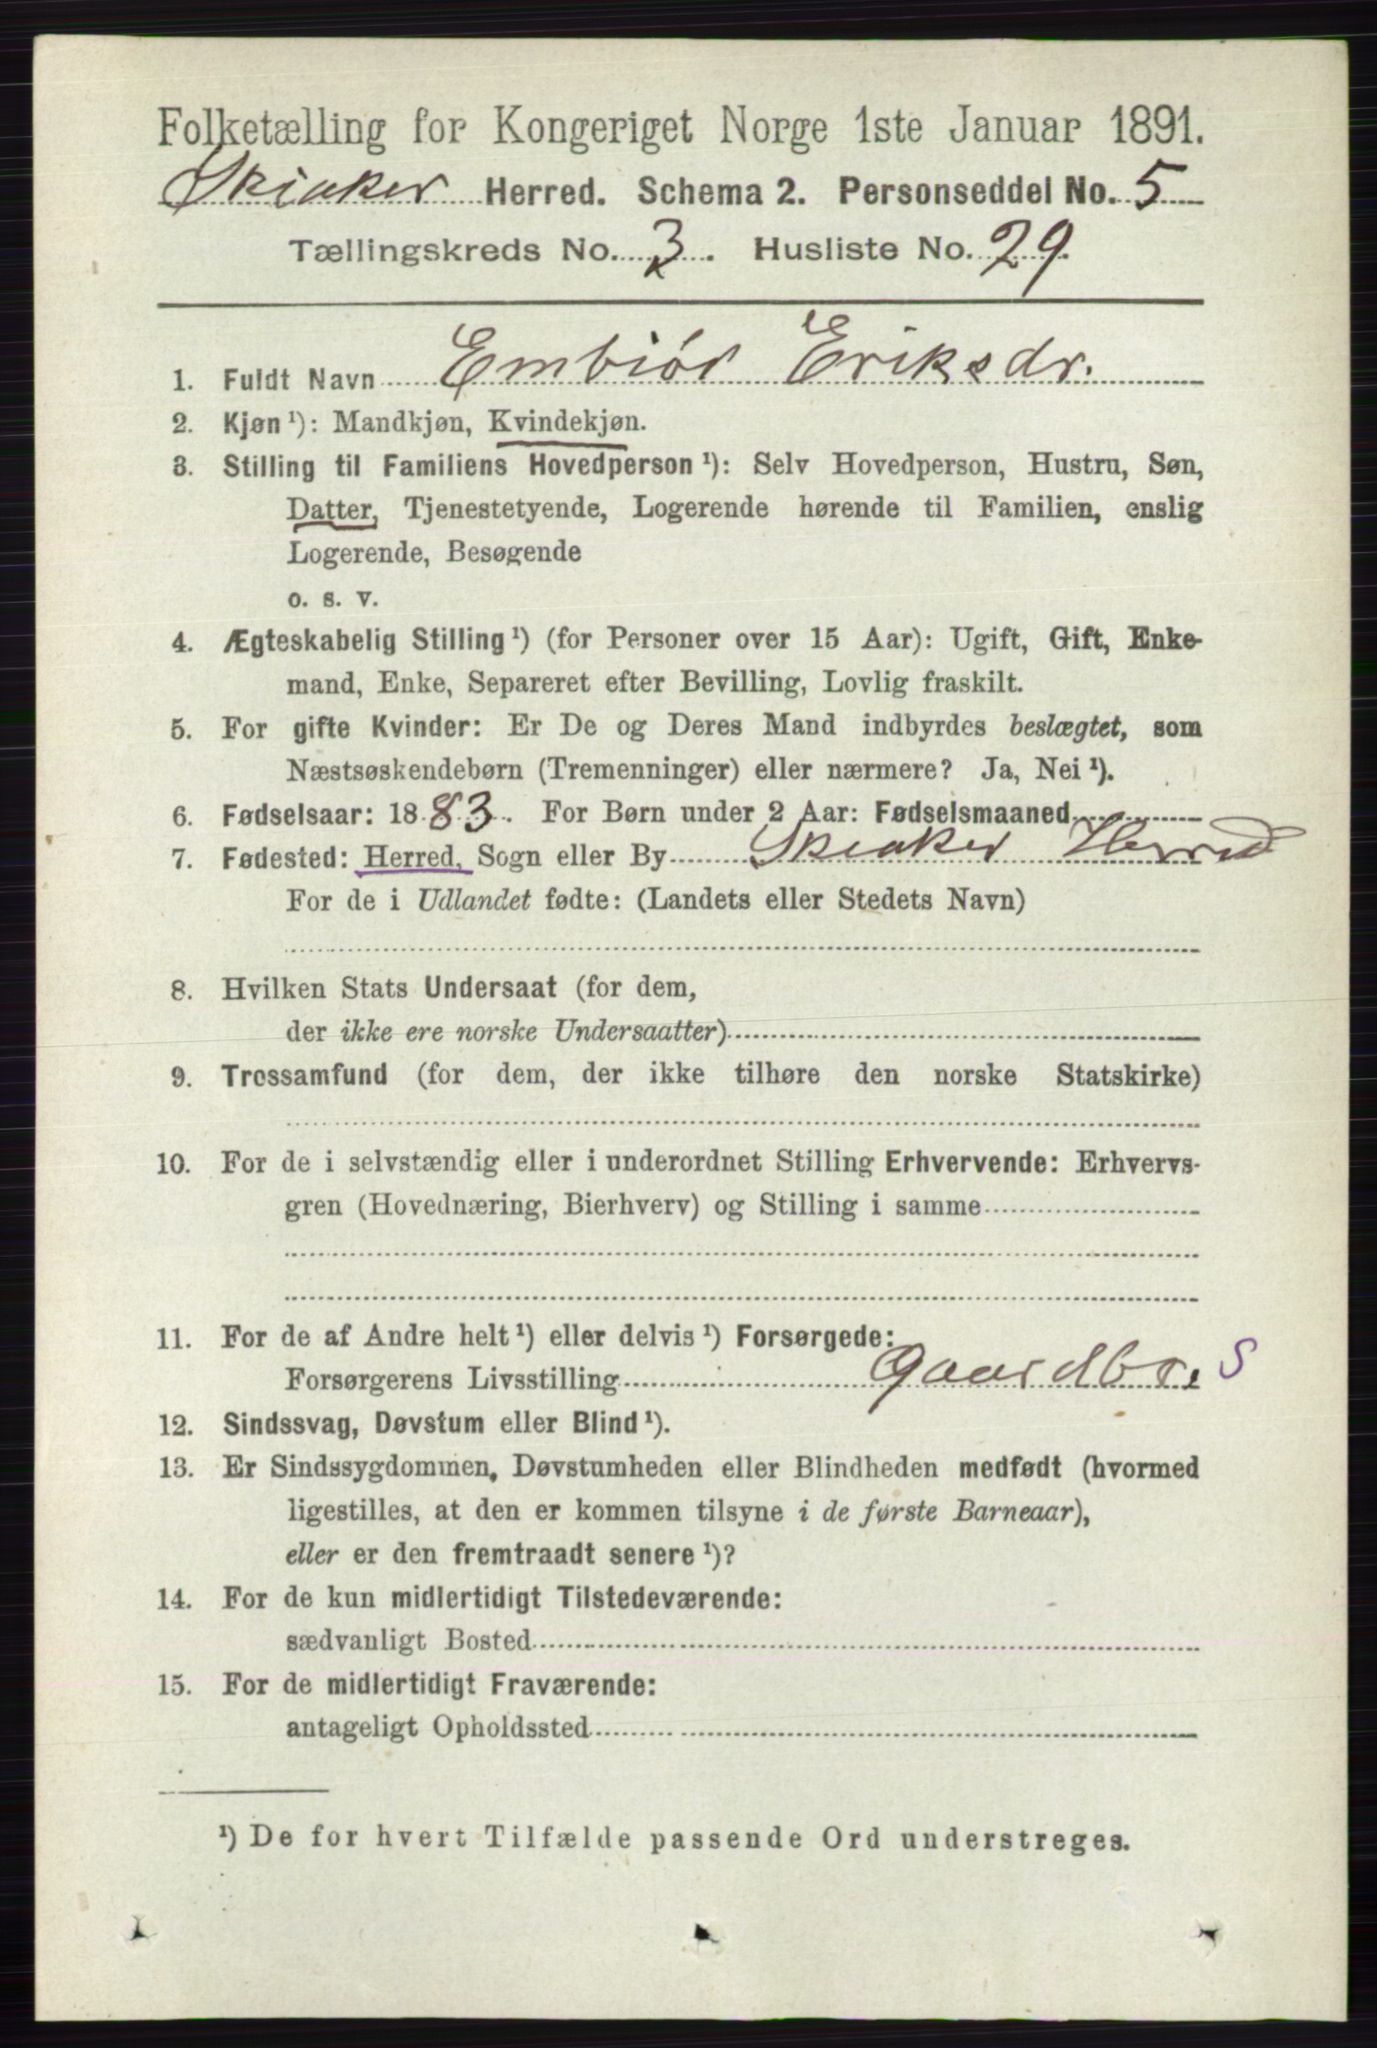 Folketælling for Kongeriget Norge 1ste Januar 1891.
Skiaker Herred. Schema 2. Personseddel No. 5
Tællingskreds No. 3. Husliste No. 29.
1. Fuldt Navn Embiør Eriksdr.
2. Kjøn ¹): Mandkjøn, Kvindekjøn.
3. Stilling til Familiens Hovedperson ¹): Selv Hovedperson, Hustru, Søn,
Datter, Tjenestetyende, Logerende hørende til Familien, enslig
Logerende, Besøgende
o. s. v.
4. Ægteskabelig Stilling ¹) (for Personer over 15 Aar): Ugift, Gift, Enke-
mand, Enke, Separeret efter Bevilling, Lovlig fraskilt.
5. For gifte Kvinder: Er De og Deres Mand indbyrdes beslægtet, som
Næstsøskendebørn (Tremenninger) eller nærmere? Ja, Nei ¹).
6. Fødselsaar: 1883. For Børn under 2 Aar: Fødselsmaaned
7. Fødested: Herred, Sogn eller By Skiaker Herred
For de i Udlandet fødte: (Landets eller Stedets Navn)
8. Hvilken Stats Undersaat (for dem,
der ikke ere norske Undersaatter)
9. Trossamfund (for dem, der ikke tilhøre den norske Statskirke)
10. For de i selvstændig eller i underordnet Stilling Erhvervende: Erhvervs-
gren (Hovednæring, Bierhverv) og Stilling i samme
11. For de af Andre helt ¹) eller delvis ¹) Forsørgede:
Forsørgerens Livsstilling Gaardbr. S
12. Sindssvag, Døvstum eller Blind ¹).
13. Er Sindssygdommen, Døvstumheden eller Blindheden medfødt (hvormed
ligestilles, at den er kommen tilsyne i de første Barneaar),
eller er den fremtraadt senere ¹)?
14. For de kun midlertidigt Tilstedeværende:
sædvanligt Bosted
15. For de midlertidigt Fraværende:
antageligt Opholdssted
¹) De for hvert Tilfælde passende Ord understreges.